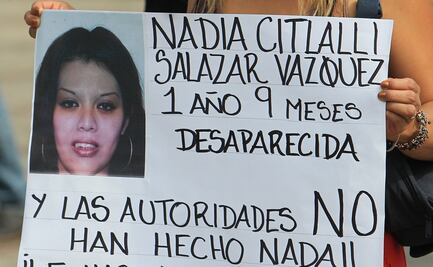 NADIA CITLALLI
SALAZAR VAZQUEZ
1 AÑO 9 MESES
DESAPARECIDA
Y LAS AUTORIDADES NO
HAN HECHO NADA!!